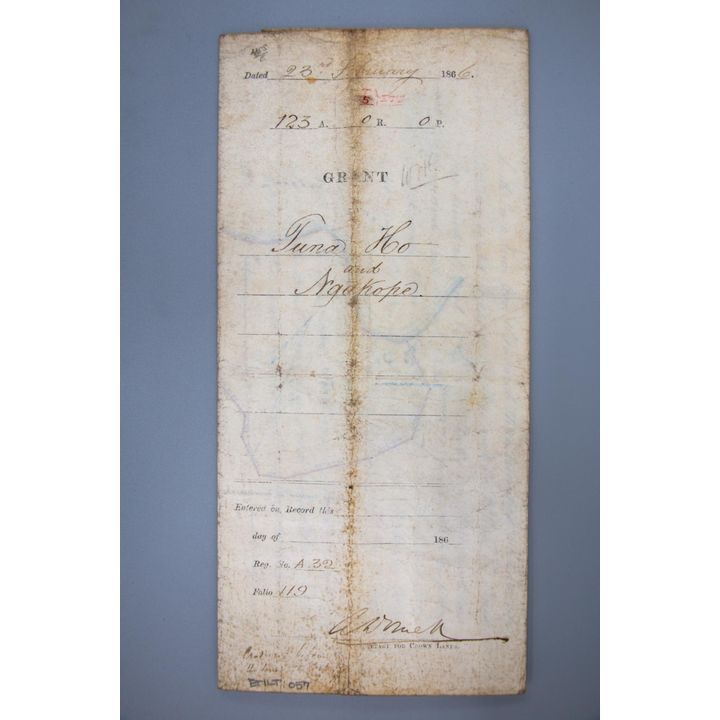 Dated 23rd February 1866.
123 A. 0 R. 0 P.
GRANT
Tuna Ho
and
Ngakope.
Entered on Record this
day of 186
Reg. No. A. 32
Folio 119
FOR CROWN LANDS.
057